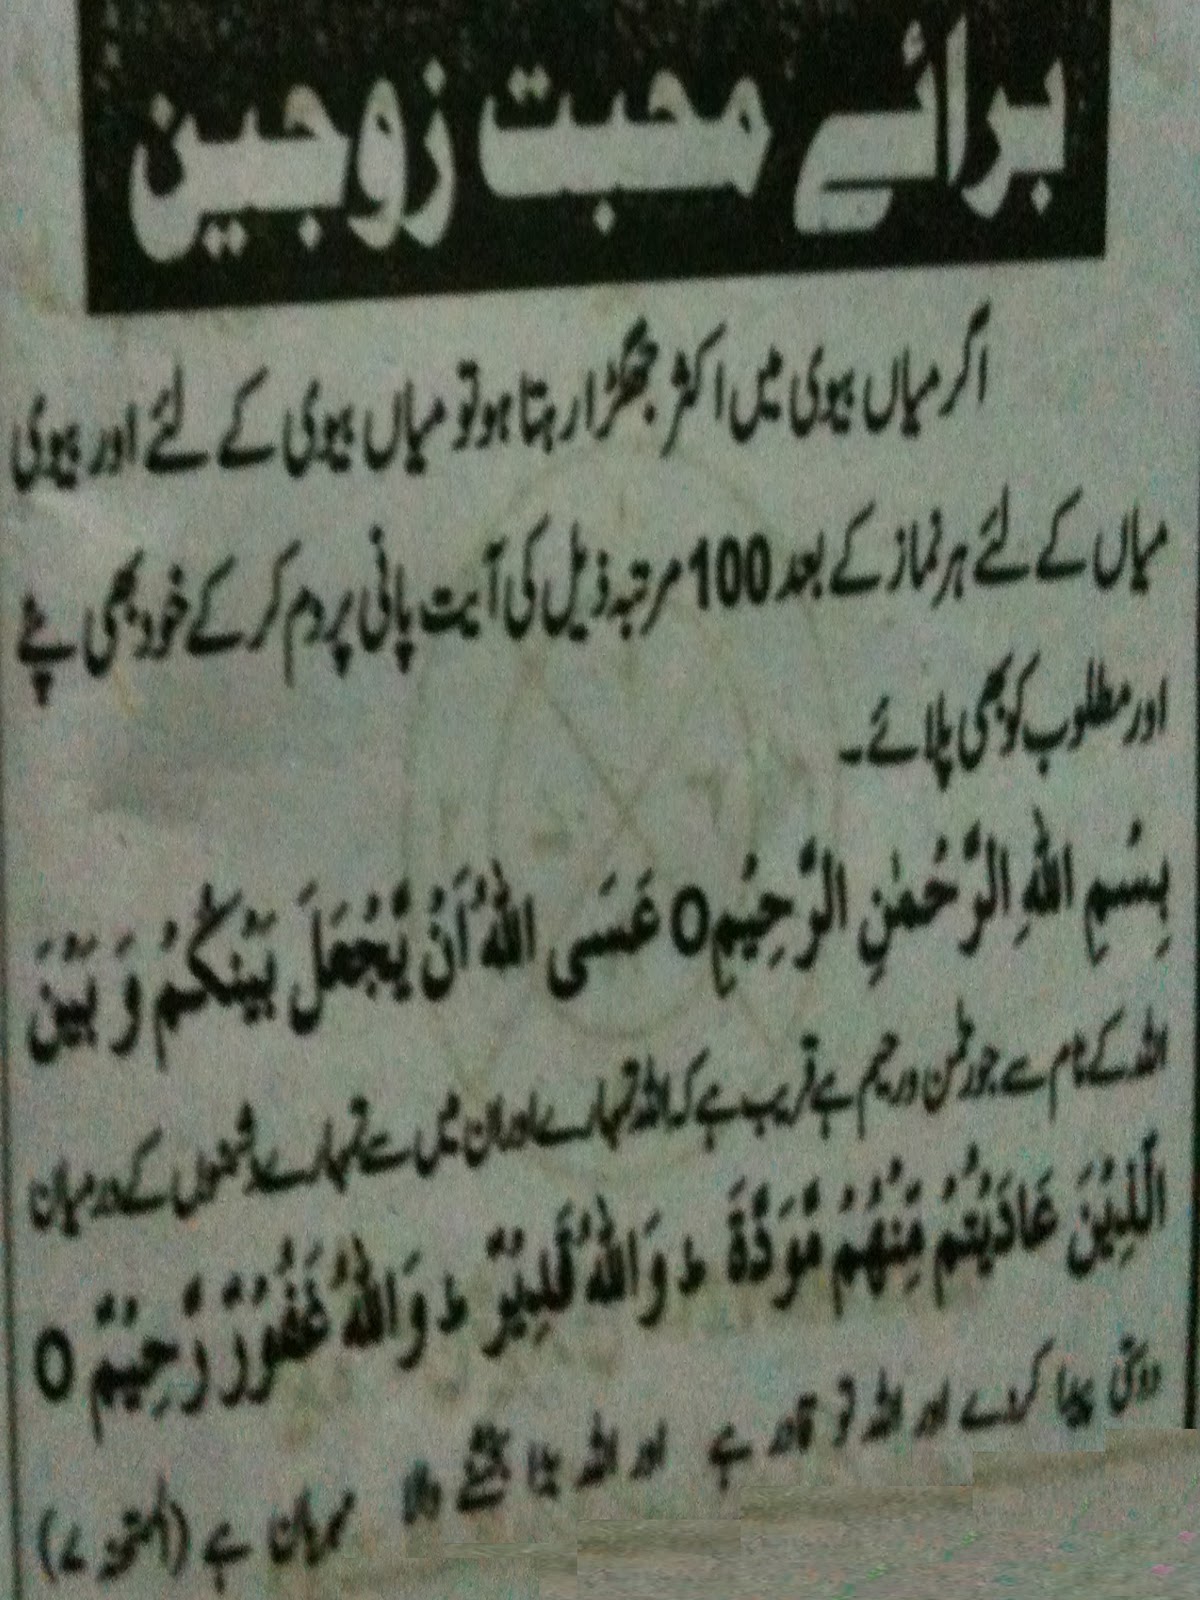 برائے محبت زوجین
اگر میاں بیوی میں اکثر جھگڑا رہتا ہو تو میاں بیوی کے لئے اور بیوی
میاں کے لئے ہر نماز کے بعد 100 مرتبہ ذیل کی آیت پانی پر دم کر کے خود بھی پئے
اور مطلوب کو بھی پلائے۔
بِسْمِ اللهِ الرَّحْمٰنِ الرَّحِيْمِ O عَسَى اللهُ اَنْ يَّجْعَلَ بَيْنَكُمْ وَ بَيْنَ
اللہ کے نام سے جو رحمٰن و رحیم ہے قریب ہے کہ اللہ تمہارے اور ان میں سے تمہارے دشمنوں کے درمیان
الَّذِيْنَ عَادَيْتُمْ مِّنْهُمْ مَّوَدَّةً ط وَاللهُ قَدِيْرٌ ط وَاللهُ غَفُوْرٌ رَّحِيْمٌ O
دوستی پیدا کر دے اور اللہ تو قادر ہے اور اللہ بڑا بخشنے والا مہربان ہے (الممتحنہ ۷)